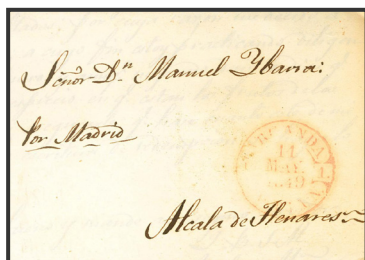 Señor Dn Manuel Ybarra:
Por Madrid
11
MAY.
1849
Alcala de Henares